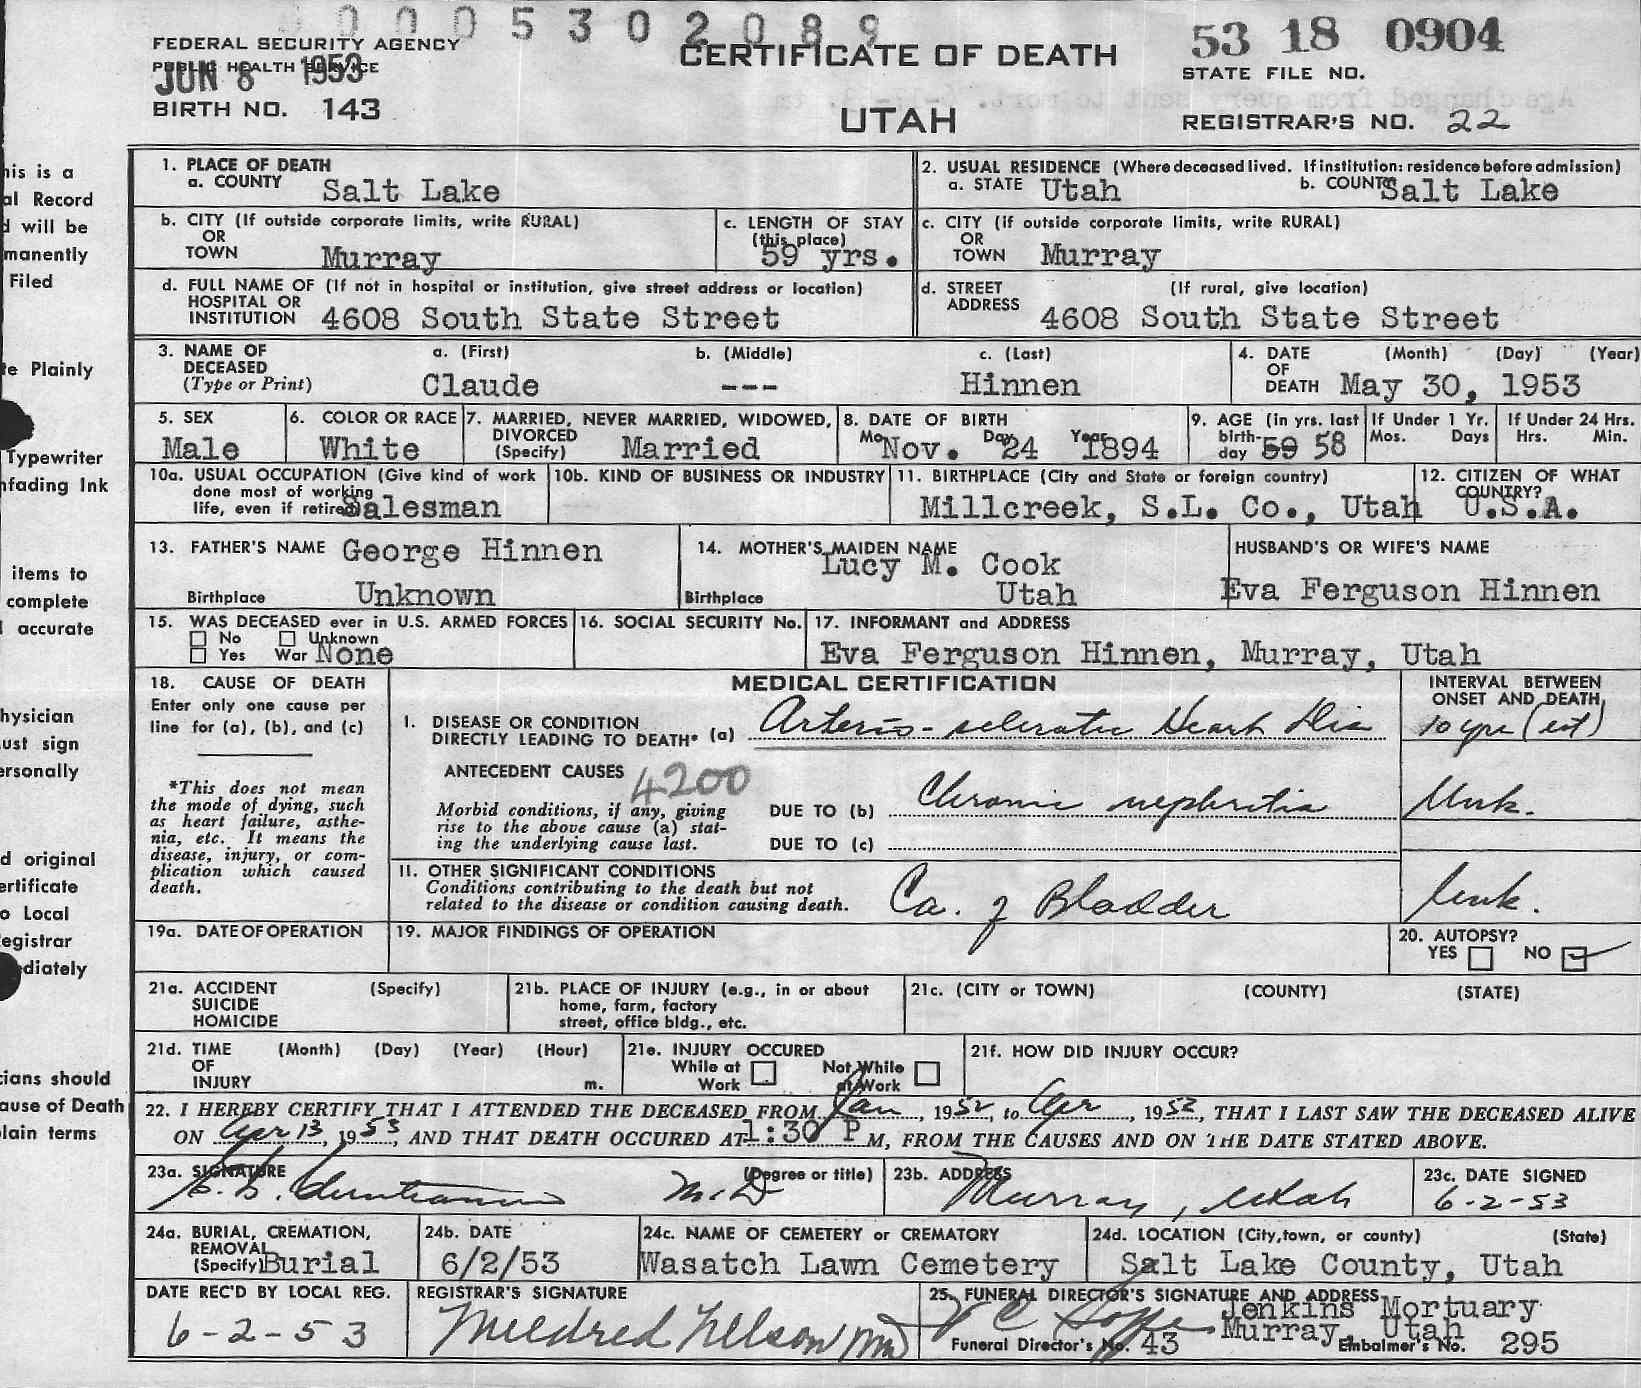 0005302089
FEDERAL SECURITY AGENCY
PUBLIC HEALTH SERVICE
JUN 8 1953
BIRTH NO. 143
CERTIFICATE OF DEATH
UTAH
53 18 0904
STATE FILE NO.
Age changed from query sent to mort.
REGISTRAR'S NO. 22
his is a
al Record
d will be
manently
Filed
te Plainly
Typewriter
nfading Ink
items to
complete
accurate
hysician
ust sign
ersonally
d original
ertificate
o Local
egistrar
diately
cians should
ause of Death
lain terms
1. PLACE OF DEATH
a. COUNTY Salt Lake
2. USUAL RESIDENCE (Where deceased lived. If institution: residence before admission)
a. STATE Utah b. COUNTY Salt Lake
b. CITY (If outside corporate limits, write RURAL)
OR
TOWN Murray
c. LENGTH OF STAY
(this place)
59 yrs.
c. CITY (if outside corporate limits, write RURAL)
OR
TOWN Murray
d. FULL NAME OF (If not in hospital or institution, give street address or location)
HOSPITAL OR
INSTITUTION 4608 South State Street
d. STREET (If rural, give location)
ADDRESS 4608 South State Street
3. NAME OF DECEASED
(Type or Print)
a. (First) b. (Middle) c. (Last)
Claude --- Hinnen
4. DATE OF DEATH (Month) (Day) (Year)
May 30, 1953
5. SEX
Male
6. COLOR OR RACE
White
7. MARRIED, NEVER MARRIED, WIDOWED,
DIVORCED
(Specify) Married
8. DATE OF BIRTH
Mo. Nov. Day 24 Year 1894
9. AGE (in yrs. last
birth-
day 59 58
If Under 1 Yr.
Mos. Days
If Under 24 Hrs.
Hrs. Min.
10a. USUAL OCCUPATION (Give kind of work
done most of working
life, even if retired) Salesman
10b. KIND OF BUSINESS OR INDUSTRY
11. BIRTHPLACE (City and State or foreign country)
Millcreek, S.L. Co., Utah
12. CITIZEN OF WHAT
COUNTRY?
U.S.A.
13. FATHER'S NAME George Hinnen
Birthplace Unknown
14. MOTHER'S MAIDEN NAME
Lucy M. Cook
Birthplace Utah
HUSBAND'S OR WIFE'S NAME
Eva Ferguson Hinnen
15. WAS DECEASED ever in U.S. ARMED FORCES
No Unknown
Yes War None
16. SOCIAL SECURITY No.
17. INFORMANT and ADDRESS
Eva Ferguson Hinnen, Murray, Utah
18. CAUSE OF DEATH
Enter only one cause per
line for (a), (b), and (c)
*This does not mean
the mode of dying, such
as heart failure, asthe-
nia, etc. It means the
disease, injury, or com-
plication which caused
death.
MEDICAL CERTIFICATION
INTERVAL BETWEEN
ONSET AND DEATH
I. DISEASE OR CONDITION
DIRECTLY LEADING TO DEATH* (a) Arterio-sclerotic Heart Dis
10 yrs (est)
ANTECEDENT CAUSES 4200
Morbid conditions, if any, giving
rise to the above cause (a) stat-
ing the underlying cause last.
DUE TO (b) Chronic nephritis
Unk.
DUE TO (c)
11. OTHER SIGNIFICANT CONDITIONS
Conditions contributing to the death but not
related to the disease or condition causing death.
Ca. of Bladder
Unk.
19a. DATE OF OPERATION
19. MAJOR FINDINGS OF OPERATION
20. AUTOPSY?
YES NO
21a. ACCIDENT (Specify)
SUICIDE
HOMICIDE
21b. PLACE OF INJURY (e.g., in or about
home, farm, factory
street, office bldg., etc.
21c. (CITY or TOWN) (COUNTY) (STATE)
21d. TIME (Month) (Day) (Year) (Hour)
OF
INJURY m.
21e. INJURY OCCURED
While at Not While
Work at Work
21f. HOW DID INJURY OCCUR?
22. I HEREBY CERTIFY THAT I ATTENDED THE DECEASED FROM Jan, 1952, to Apr, 1952, THAT I LAST SAW THE DECEASED ALIVE
ON Apr 13, 1953, AND THAT DEATH OCCURED AT 1:30 P M, FROM THE CAUSES AND ON THE DATE STATED ABOVE.
23a. SIGNATURE (Degree or title)
M.D
23b. ADDRESS
Murray, Utah
23c. DATE SIGNED
6-2-53
24a. BURIAL, CREMATION,
REMOVAL
(Specify) Burial
24b. DATE
6/2/53
24c. NAME OF CEMETERY or CREMATORY
Wasatch Lawn Cemetery
24d. LOCATION (City, town, or county) (State)
Salt Lake County, Utah
DATE REC'D BY LOCAL REG.
6-2-53
REGISTRAR'S SIGNATURE
Mildred Nelson
25. FUNERAL DIRECTOR'S SIGNATURE AND ADDRESS
Jenkins Mortuary
Murray, Utah
Funeral Director's No. 43 Embalmer's No. 295